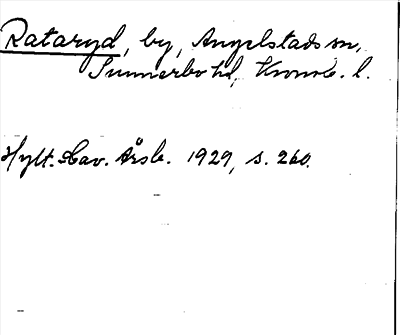 Rataryd, by, Angelstads sn,
Sunnerbo hd, Kronob. l.
Hylt.-Cav. Årsb. 1929, s. 260.